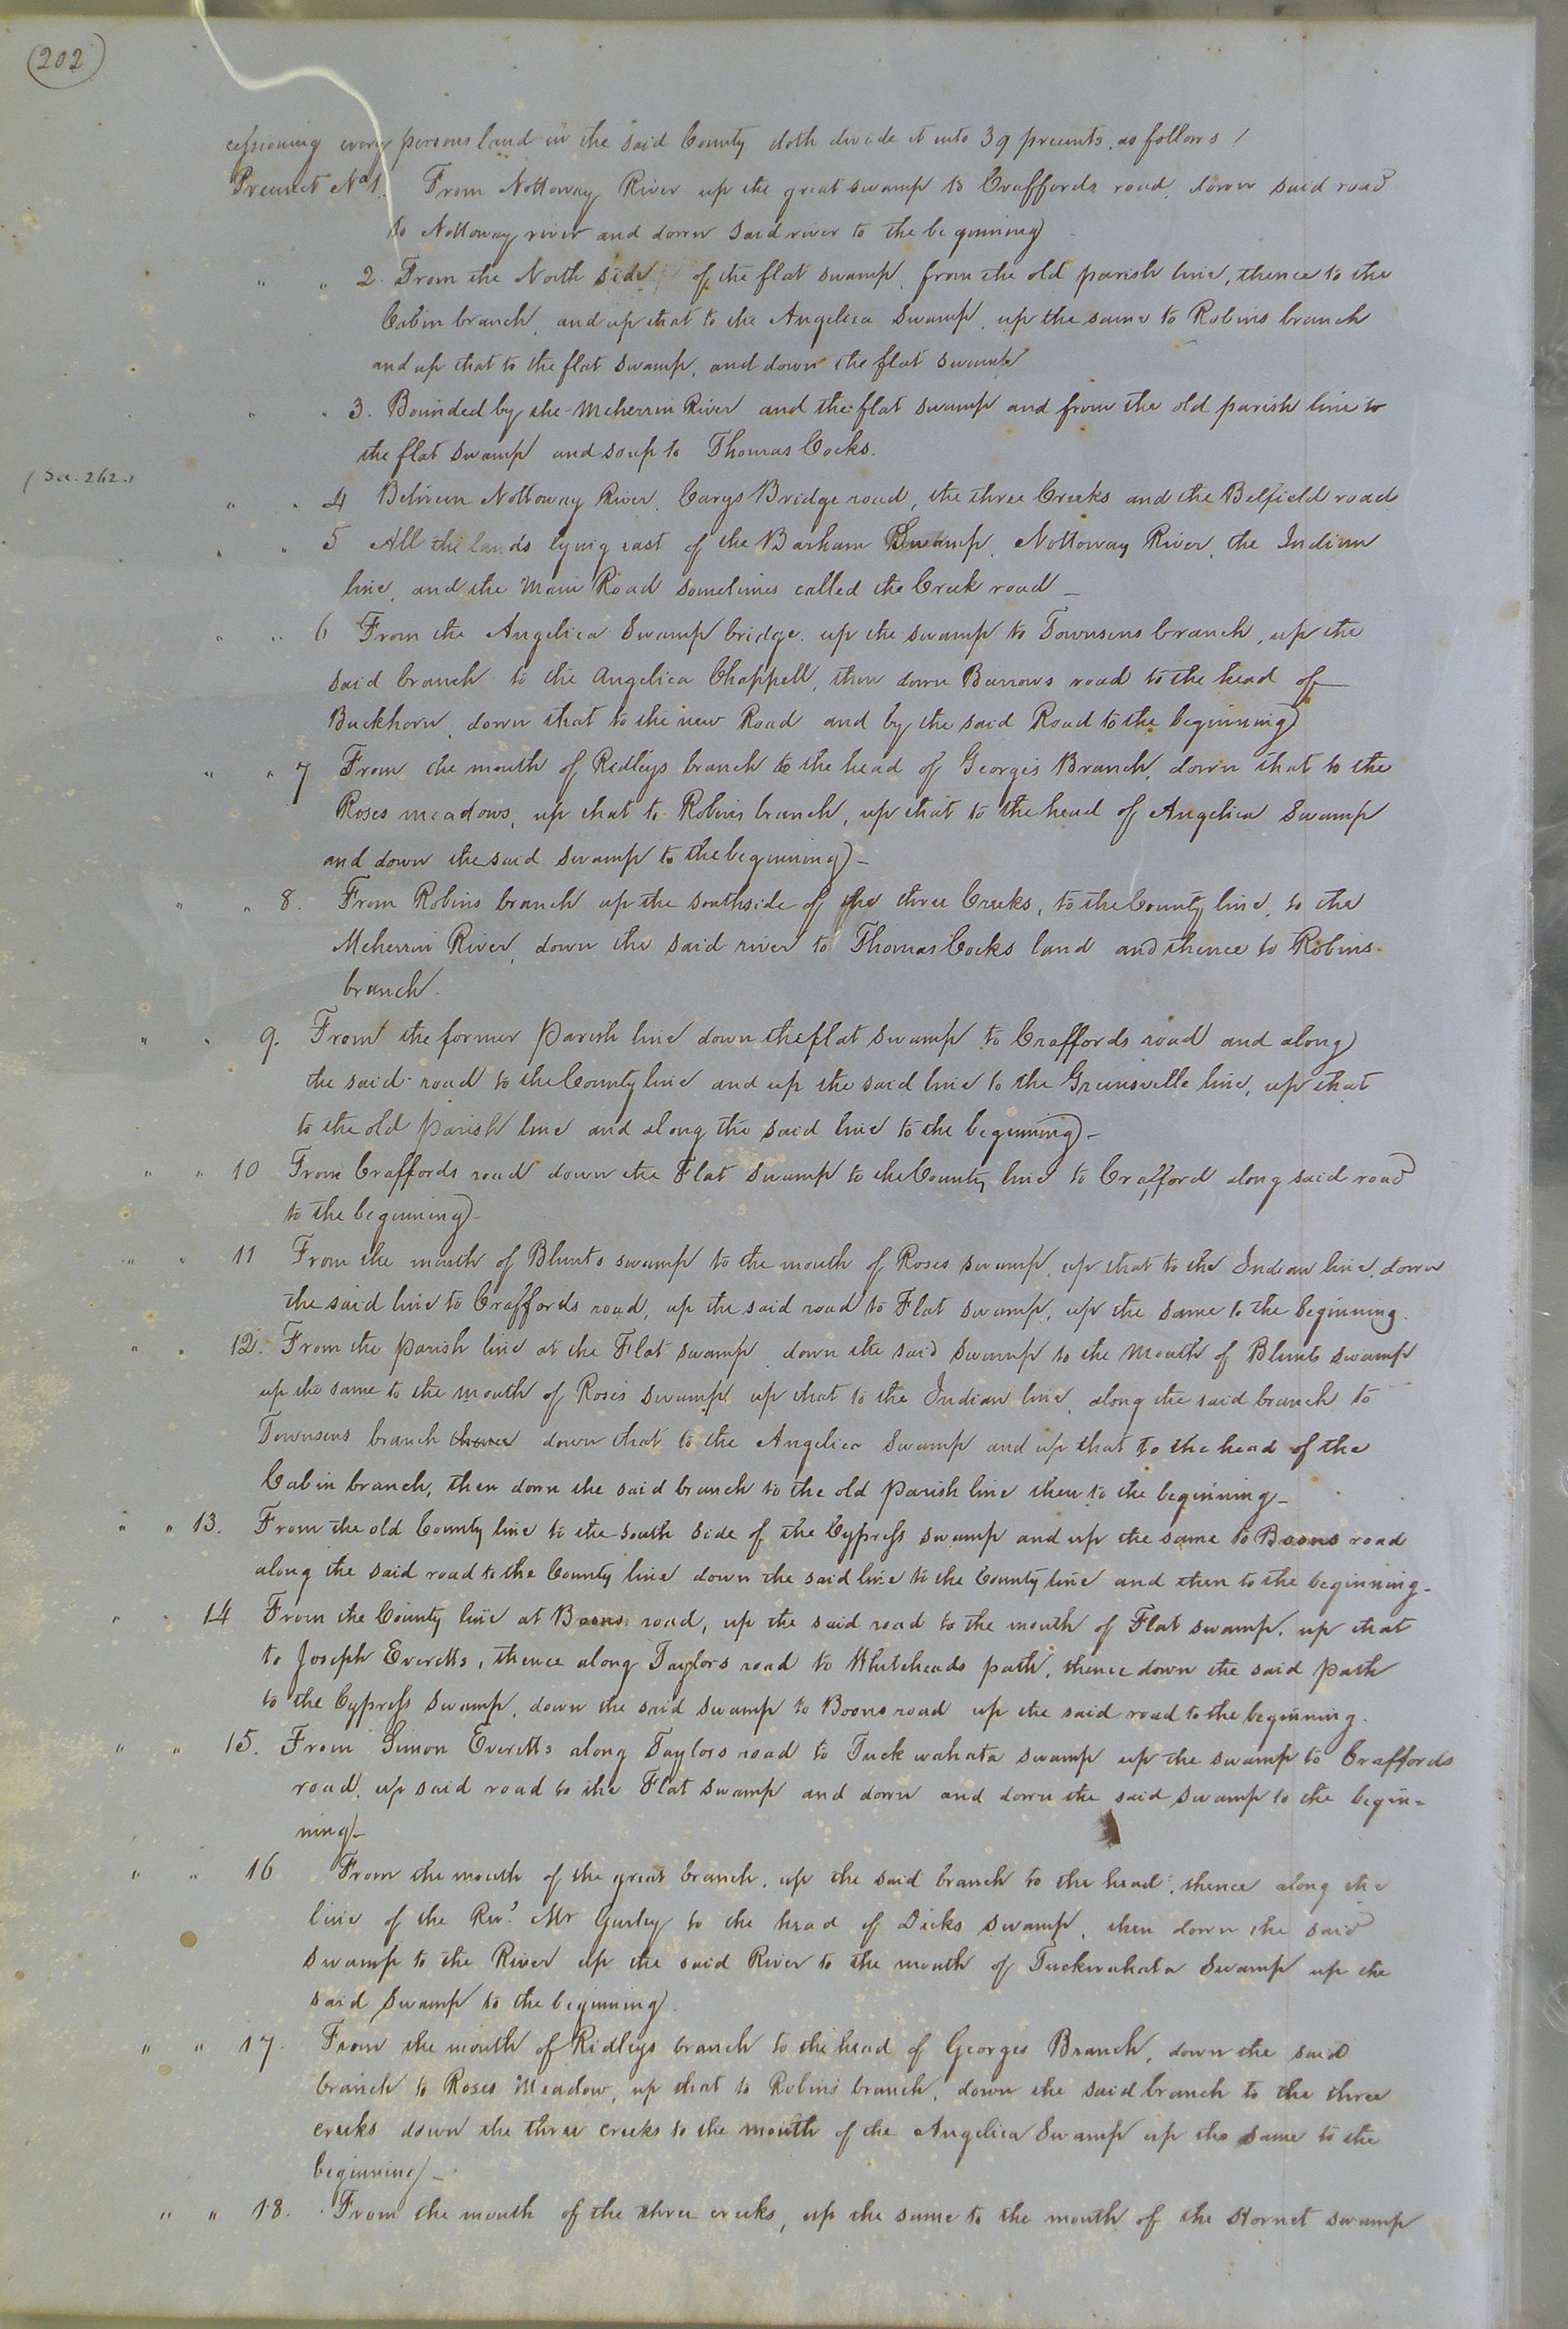 (202)
cessioning every persons land in the said County doth divide it into 39 precints. as follows /
Precinct No 1. From Nottoway River up the great swamp to Craffords road, down said road
to Nottoway river and down said river to the beginning
" " 2. From the North side of the flat swamp, from the old parish line, thence to the
Cabin branch, and up that to the Angelica Swamp, up the same to Robins branch
and up that to the flat swamp, and down the flat swamp
" " 3. Bounded by the Meherrin River and the flat swamp and from the old parish line to
the flat swamp and so up to Thomas Cocks.
(See. 262.)
" " 4 Between Nottoway River, Carys Bridge road, the three Creeks and the Belfield road
" " 5 All the lands lying east of the Barham Swamp, Nottoway River, the Indian
line, and the Main Road sometimes called the Creek road _
" " 6 From the Angelica Swamp bridge. up the swamp to Townsens branch, up the
said branch to the Angelica Chappell, then down Barrows road to the head of
Buckhorn, down that to the new Road and by the said Road to the beginning
" " 7 From the mouth of Ridleys branch to the head of Georges Branch, down that to the
Roses meadows, up that to Robins branch, up that to the head of Angelica Swamp
and down the said swamp to the beginning _
" " 8. From Robins branch up the southside of the three Creeks, to the County line, to the
Meherrin River, down the said river to Thomas Cocks land and thence to Robins
branch.
" " 9. From the former Parish line down the flat swamp to Craffords road and along
the said road to the County line and up the said line to the Greensville line, up that
to the old parish line and along the said line to the beginning _
" " 10 From Craffords road down the Flat Swamp to the County line to Crafford along said road
to the beginning _
" " 11 From the mouth of Blunts swamp to the mouth of Roses swamp, up that to the Indian line, down
the said line to Craffords road, up the said road to Flat swamp, up the same to the beginning.
" " 12. From the parish line at the Flat swamp, down the said swamp to the Mouth of Blunts swamp
up the same to the mouth of Roses swamp up that to the Indian line, along the said branch to
Townsens branch down that to the Angelica Swamp and up that to the head of the
Cabin branch, then down the said branch to the old parish line then to the beginning _
" " 13. From the old County line to the south side of the Cypress swamp and up the same to Boons road
along the said road to the County line down the said line to the County line and then to the beginning _
" " 14 From the County line at Boons road, up the said road to the mouth of Flat swamp, up that
to Joseph Everetts, thence along Taylors road to Whiteheads path, thence down the said path
to the Cypress Swamp, down the said swamp to Boons road up the said road to the beginning.
" " 15. From Simon Everetts along Taylors road to Tuckwahata swamp up the swamp to Craffords
road, up said road to the Flat swamp and down and down the said swamp to the begin=
ning _
" " 16 From the mouth of the great branch, up the said branch to the head, thence along the
line of the Revd. Mr Gurley to the head of Dicks swamp, then down the said
swamp to the River up the said River to the mouth of Tuckwahata Swamp up the
said Swamp to the beginning.
" " 17. From the mouth of Ridleys branch to the head of Georges Branch, down the said
branch to Roses Meadow, up that to Robins branch, down the said branch to the three
creeks down the three creeks to the mouth of the Angelica Swamp up the same to the
beginning _
" " 18. From the mouth of the three creeks, up the same to the mouth of the Hornet swamp